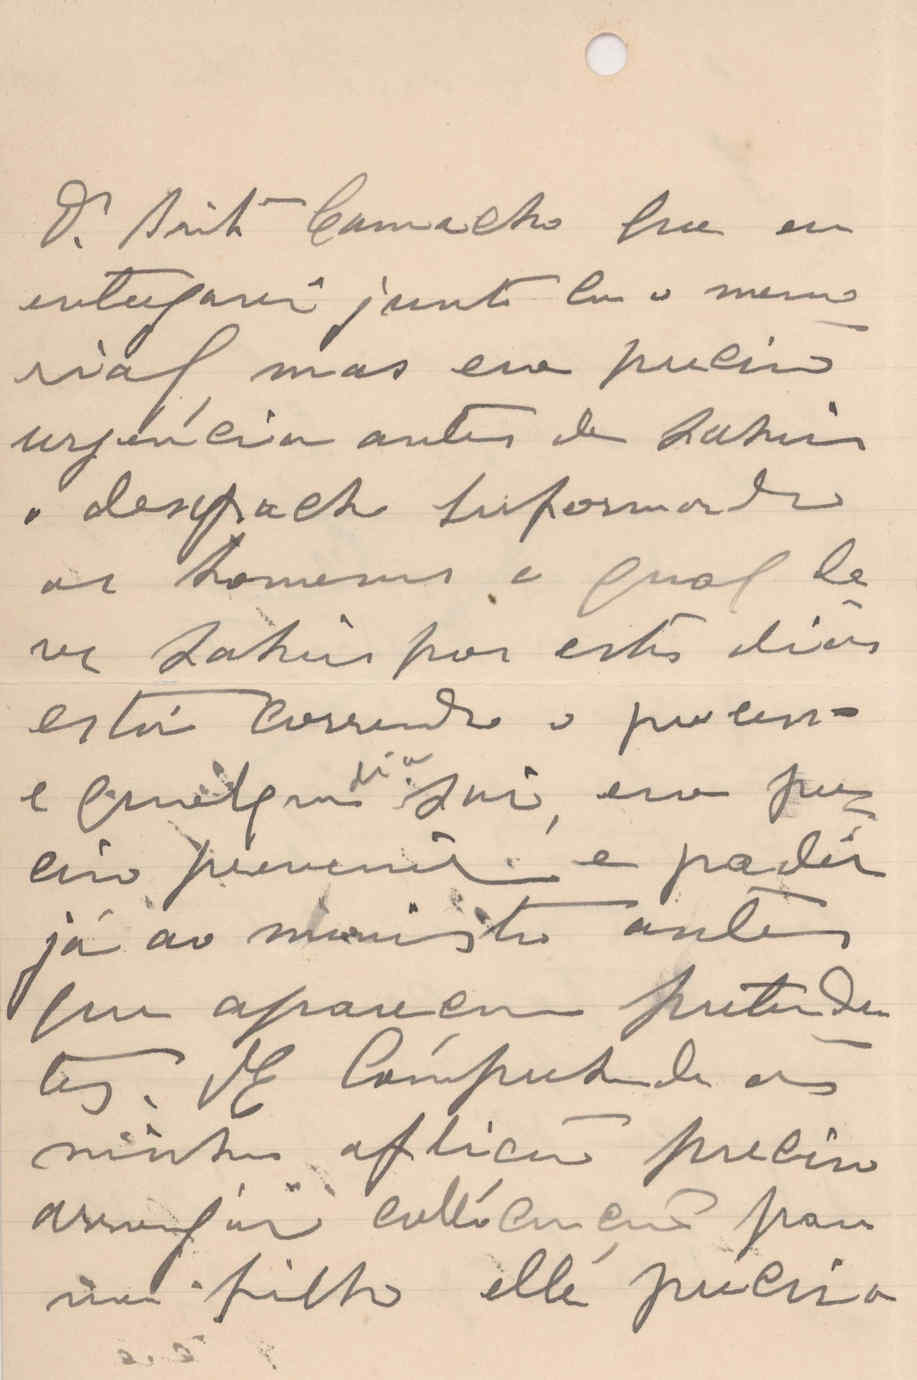 Dr. Brito Camacho que eu
entregarei junto com o memo
rial, mas era preciso
urgencia antes de sahir
o despacho reformando
os homens o qual de
ve sahir por estes dias
está correndo o processo
e qualquer dia sai, era pre
ciso prevenir e pedir
já ao ministro antes
que apareçam pretenden
tes. VE Comprehende a
minha aflição preciso
arranjar collócação para
meu filho elle precisa